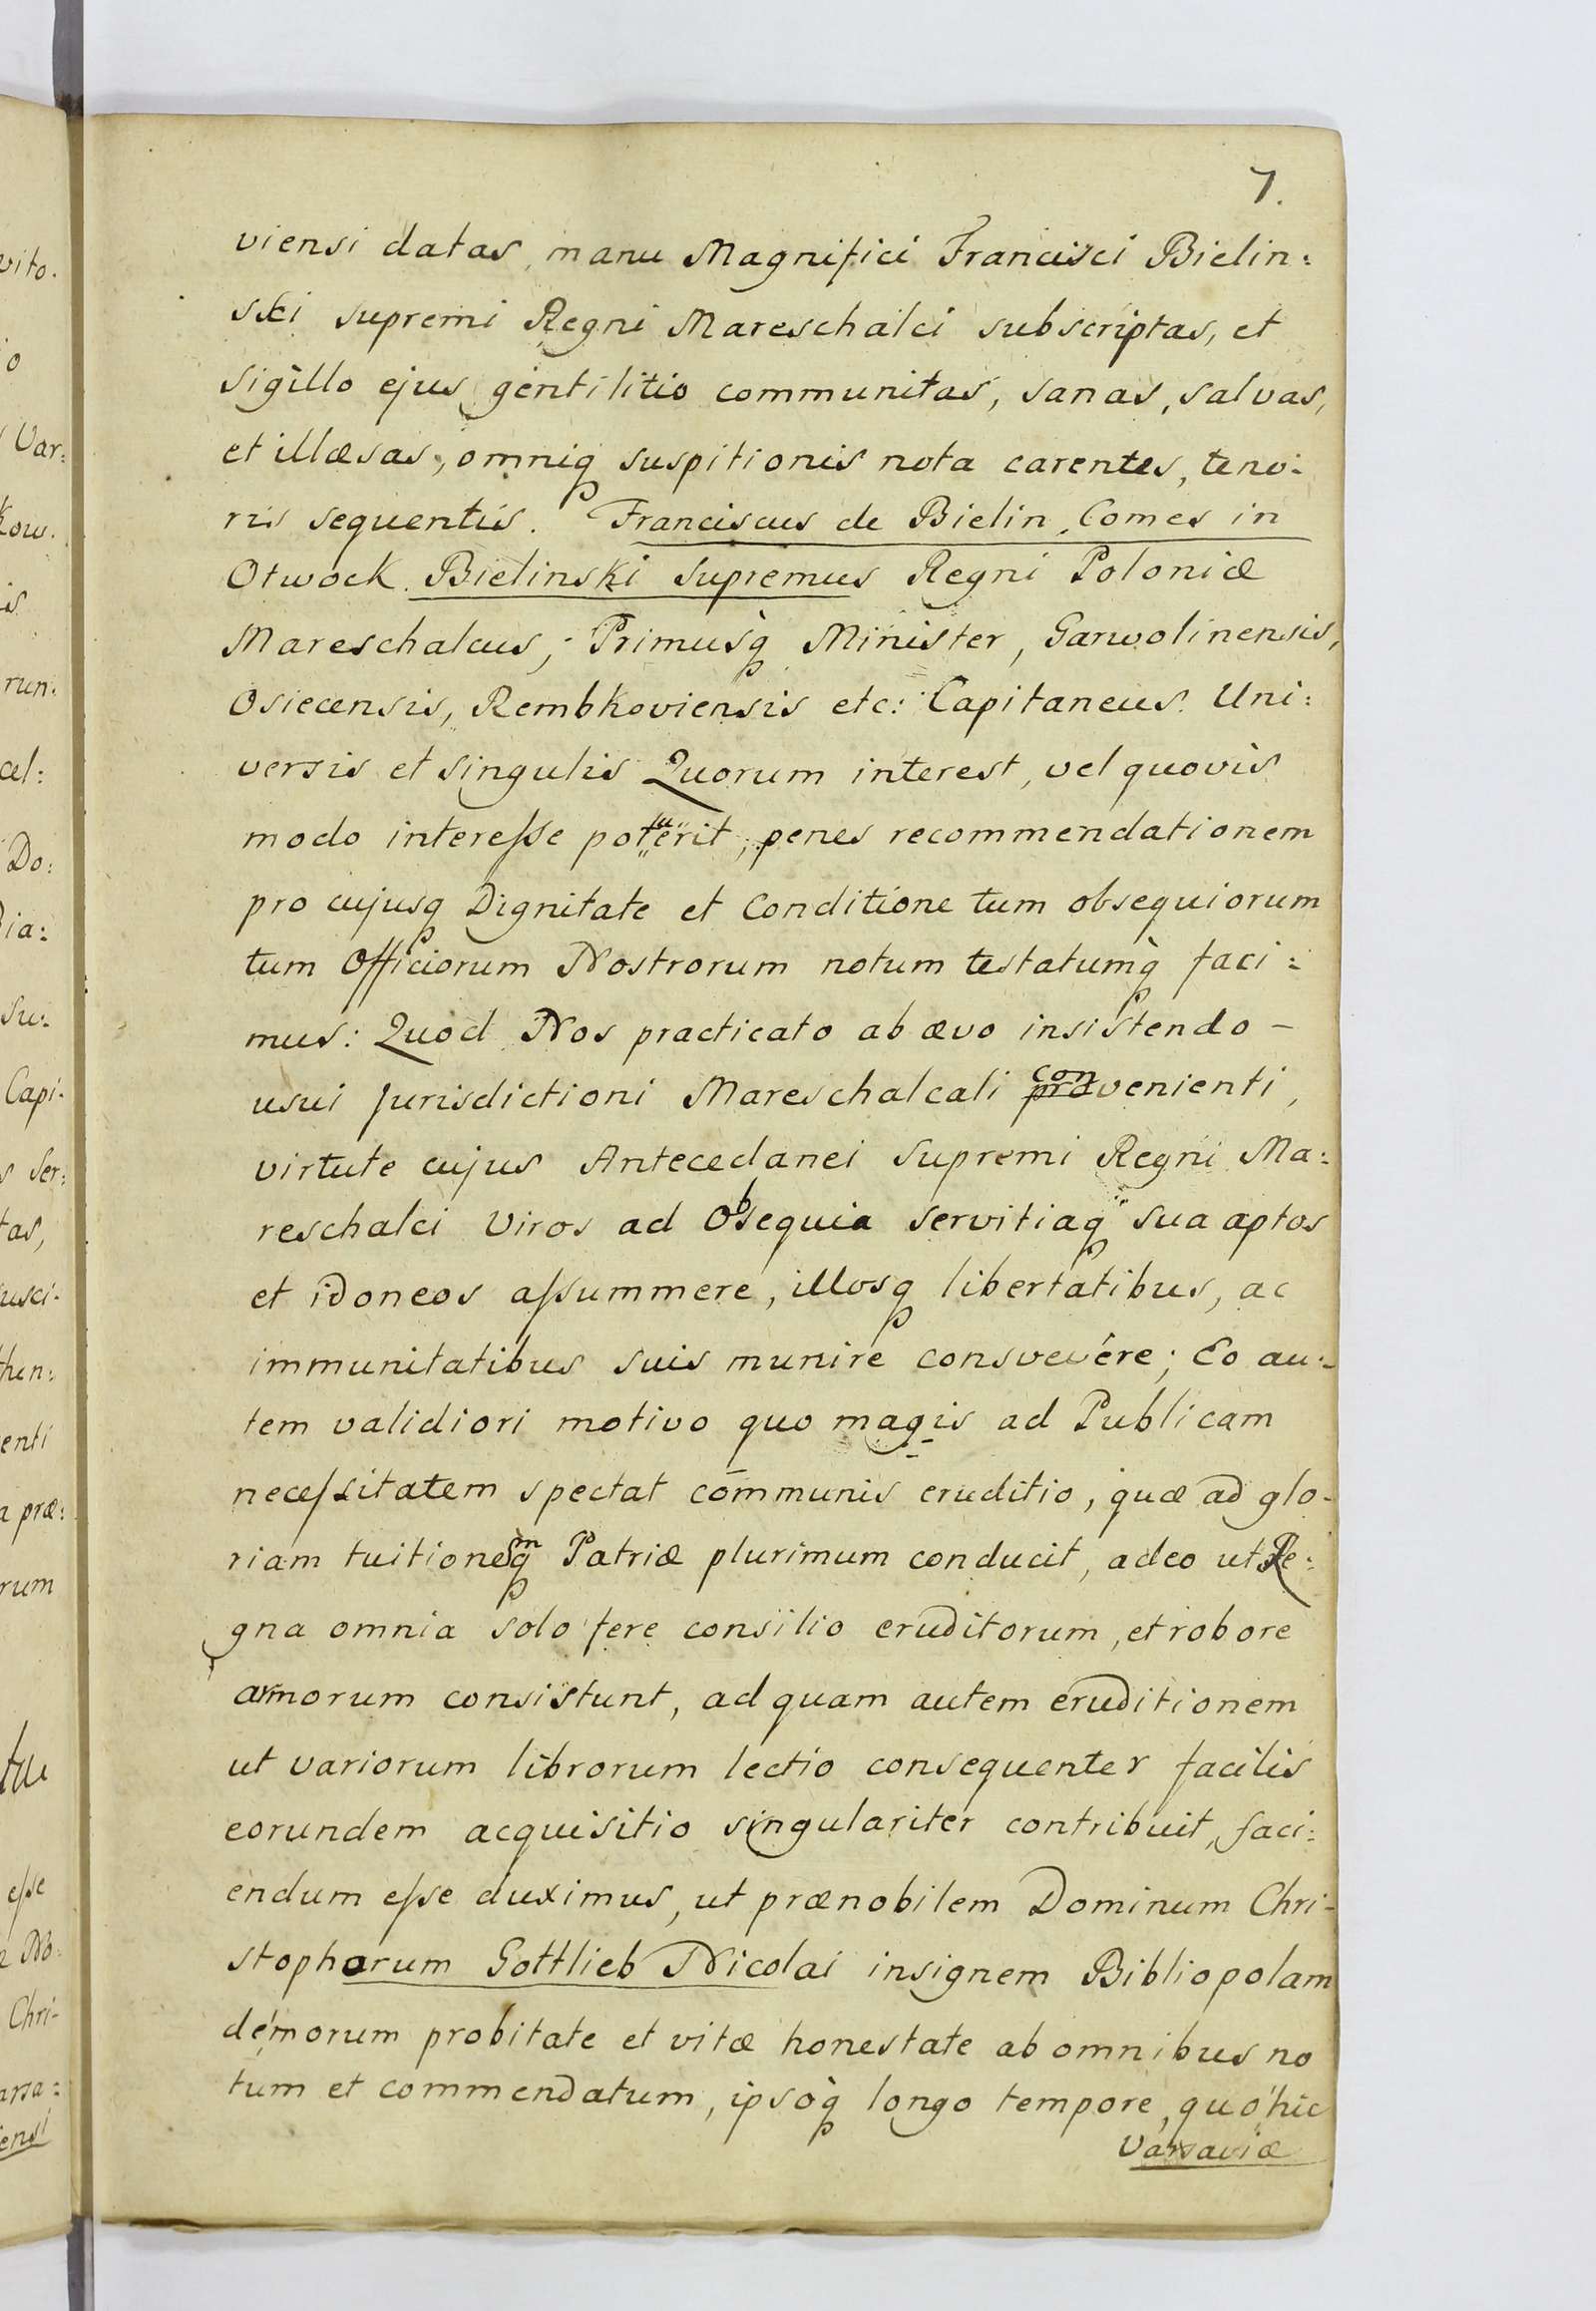 7.
viensi datas, manu Magnifici Francisci Bielin:
ski supremi Regni Mareschalci subscriptas, et
sigillo ejus gentilitio communitas, sanas, salvas,
et illæsas, omniq suspitionis nota carentes, teno:
ris sequentis. Franciscus de Bielin, Comes in
Otwock Bielinski supremus Regni Poloniæ
Mareschalcus, Primusq Minister, Garwolinensis,
Osiecensis, Rembkoviensis etc: Capitaneus. Uni:
versis et singulis Quorum interest, vel quovis
modo interesse potuerit, penes recommendationem
pro cujusq Dignitate et Conditione tum obsequiorum
tum Officiorum Nostrorum notum testatumq faci:
mus: Quod Nos practicato ab ævo insistendo –
usui Jurisdictioni Mareschalcali convenienti,
virtute cujus Antecedanei Supremi Regni Ma:
reschalci Viros ad Obsequia servitiaq sua aptos
et idoneos assummere, illosq libertatibus, ac
immunitatibus suis munire consvevére; Eo au:
tem validiori motivo quo magis ad Publicam
necessitatem spectat cōmmunis eruditio, quæ ad glo-
riam tuitionemq Patriæ plurimum conducit, adeo ut Re:
gna omnia solo fere consilio eruditorum, et robore
armorum consistunt, ad quam autem eruditionem
ut variorum librorum lectio consequenter facilis
eorundem acquisitio singulariter contribuit, faci:
endum esse duximus, ut prænobilem Dominum Chri-
stophorum Gottlieb Nicolai insignem Bibliopolam
de morum probitate et vitæ honestate ab omnibus no
tum et commendatum, ipsoq longo tempore, quo hic
Varsaviæ
vito.
o
Var:
kow.
is
run.
cel:
Do:
Bia:
Su:
Capi-
s Ser:
tas,
usci-
then:
enti
a præ:
rum
esse
n No:
Chri-
arsa:
iensi